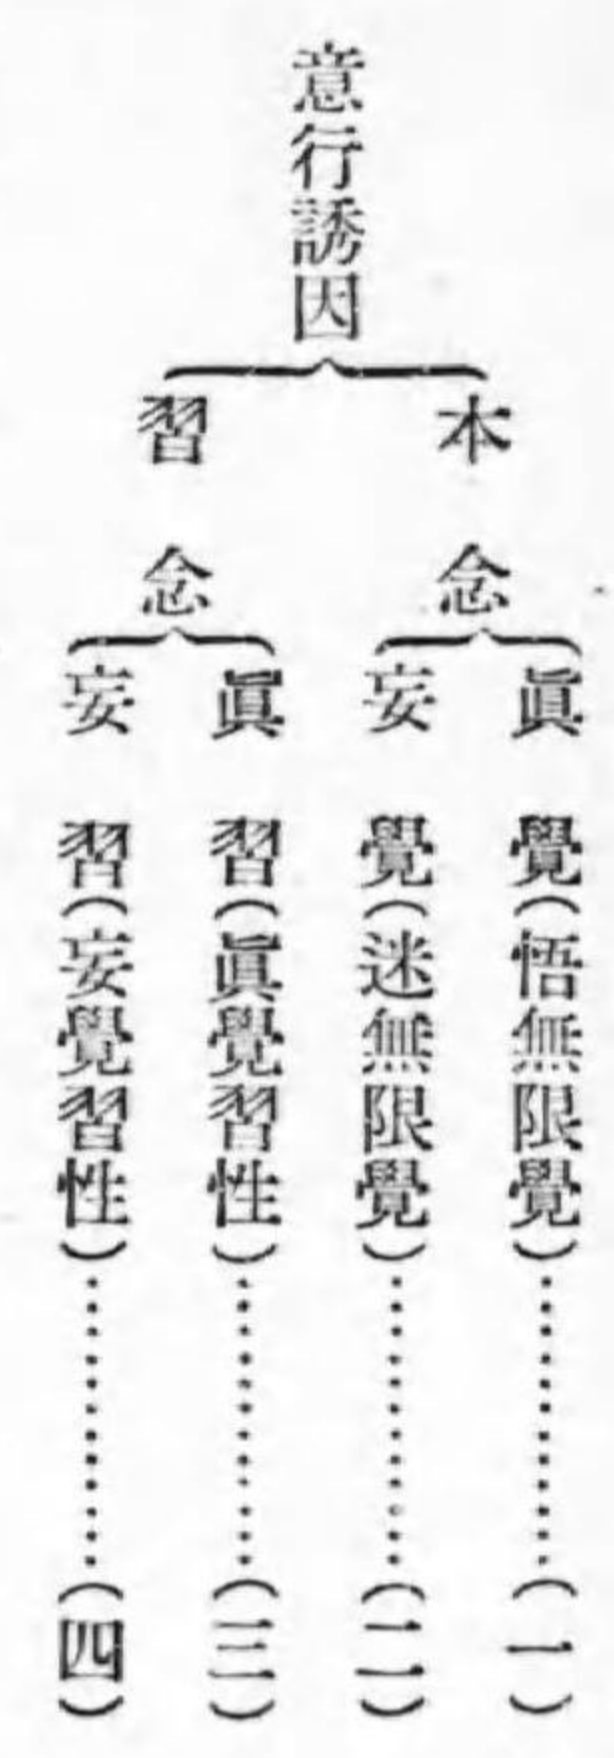 意行誘因
本念
眞覺(悟無限覺)…………(一)
妄覺(迷無限覺)…………(二)
習念
眞習(眞覺習性)…………(三)
妄習(妄覺習性)…………(四)